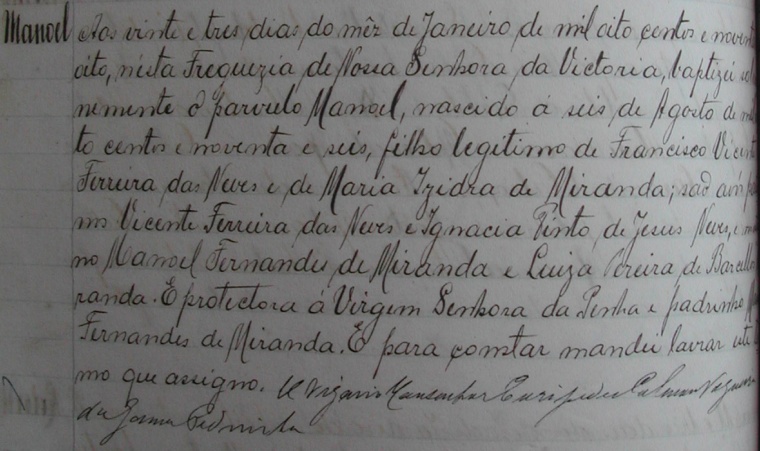 Manoel Aos vinte e tres dias do mêz de Janeiro de mil oito centos e novent
oito, nesta Freguezia de Nossa Senhora da Victoria, baptizei sol
nemente o parvulo Manoel, nascido á seis de Agosto de mil
to centos e noventa e seis, filho legitimo de Francisco Vicent
Ferreira das Neves e de Maria Izidra de Miranda; são avós pa
nos Vicente Ferreira das Neves e Ignacia Pinto de Jesus Neves, e mat
no Manoel Fernandes de Miranda e Luiza Pereira de Barcellos
randa. É protectora á Virgem Senhora da Penha e padrinho
Fernandes de Miranda. E para constar mandei lavrar este
mo que assigno. O Vigario Monsenhor Euripedes Calmon Nogueira
da Gama Pedrinha